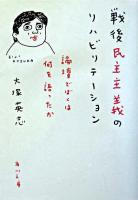 戦後民主主義の
リハビリテーション
論壇でぼくは
何を語ったか
大塚英志
EIJI OTSUKA
角川文庫